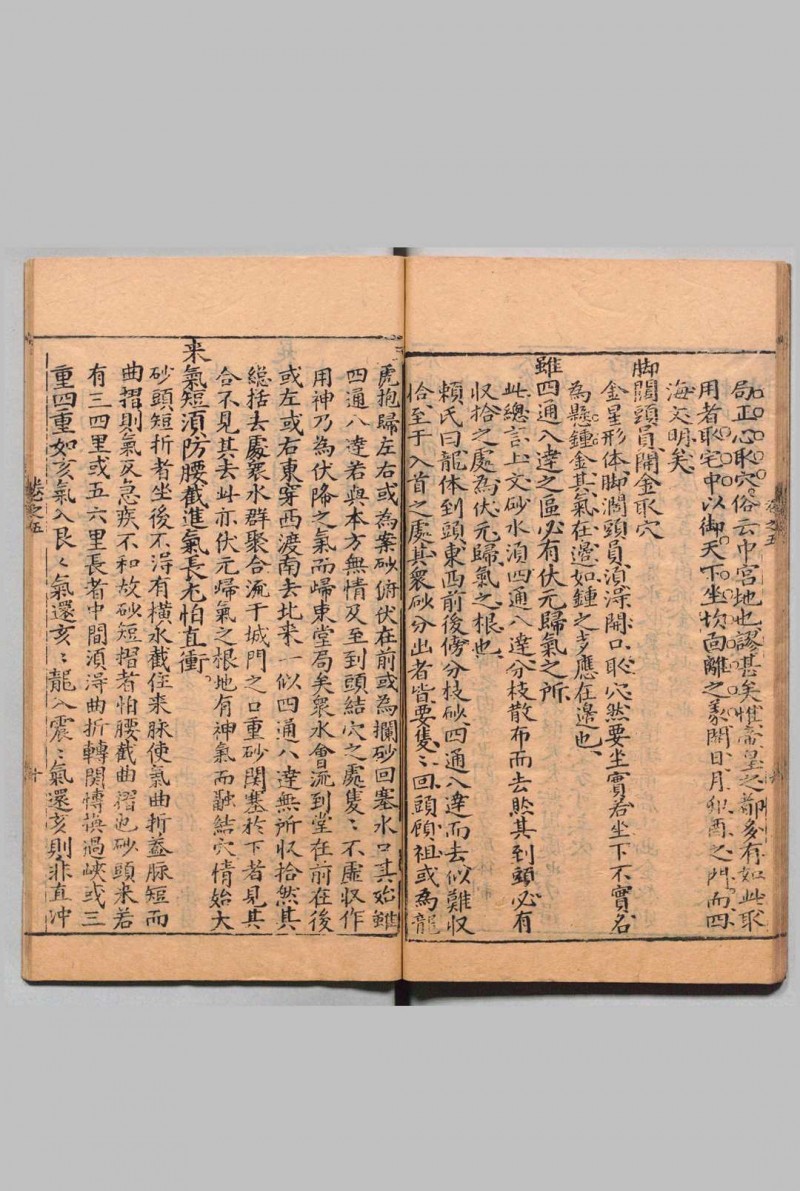 局正心取穴俗云中宮地也謬甚矣惟帝皇之都多有如此取
用者取宅中以御天下坐坎面離之象開日月卯酉之門而四
海文明矣
脚闊頭員開金取穴
金星形体脚濶頭員湏淂開口取穴然要坐實若坐下不實名
為懸鍾金其氣在邊如鍾之声應在邊也
雖四通八達之區必有伏元歸氣之所
此總言上文砂水湏四通八達分枝散布而去然其到頭必有
収拾之處為伏元歸氣之根也
頼氏曰龍体到頭東西前後傍分枝砂四通八達而去似難収
拾至于入首之處其衆砂分出者皆要隻〻回頭顧祖或為龍
虎抱歸左右或為案砂俯伏在前或為攔砂回塞水口其始雖
四通八達若與本方無情及至到頭結穴之處隻〻不虛収作
用神乃為伏降之氣而歸東堂局矣衆水會流到堂在前在後
或左或右東穿西渡南去北来一似四通八達無所収拾然其
総括去處衆水群聚合流于城門之口重砂関塞於下者見其
合不見其去此亦伏元歸氣之根地有神氣而融結穴情始大
来氣短湏防腰截進氣長尤怕直衝
砂頭短折者坐後不淂有横水截住来脉使氣曲折蓋脉短而
曲摺則氣反急疾不和故砂短摺者怕腰截曲摺也砂頭来若
有三四里或五六里長者中間湏淂曲折轉関博換過峽或三
重四重如亥氣入艮〻氣還亥〻龍入震〻氣還亥則非直冲
卷之五
十
卷之五